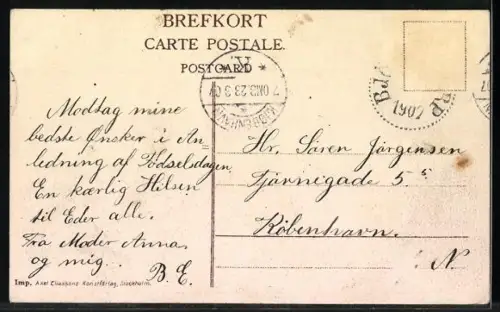 BREFKORT
CARTE POSTALE.
POSTCARD
Modtag mine
bedste Ønsker i An-
ledning af Fødselsdagen.
En kærlig Hilsen
til Eder alle.
Fra Moder Anna
og mig.
B. E.
Hr. Sören Jörgensen
Tjärnigade 5
København.
N.
KJØBENHAVN
7 OMB. 23 3 07
Imp. Axel Eliassons Konstförlag, Stockholm.